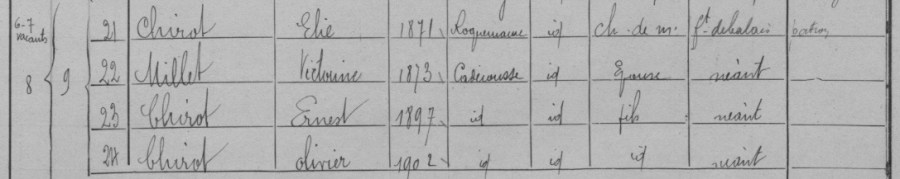 6-7
vacants
21 Chirot Elie 1871 Roquemaure id ch. de m. ft. de balais patron
8 9 22 Millet Victorine 1873 Caderousse id Epouse néant
23 Chirot Ernest 1897 id id fils néant
24 Chirot Olivier 1902 id id id néant